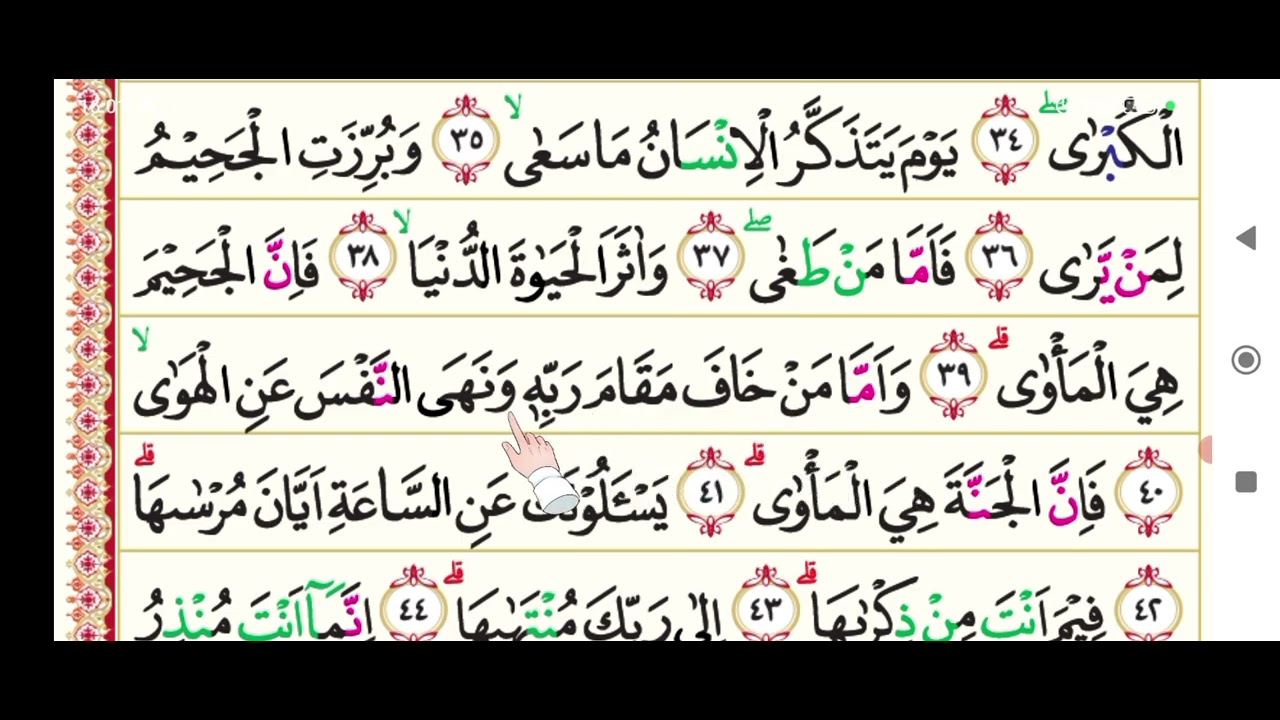 الْكُبْرٰى ۖ ٣٤ يَوْمَ يَتَذَكَّرُ الْاِنْسَانُ مَا سَعٰى ۙ ٣٥ وَبُرِّزَتِ الْجَحِيْمُ
لِمَنْ يَّرٰى ٣٦ فَاَمَّا مَنْ طَغٰى ۖ ٣٧ وَاٰثَرَ الْحَيٰوةَ الدُّنْيَا ۙ ٣٨ فَاِنَّ الْجَحِيْمَ
هِيَ الْمَأْوٰى ۗ ٣٩ وَاَمَّا مَنْ خَافَ مَقَامَ رَبِّهٖ وَنَهَى النَّفْسَ عَنِ الْهَوٰى ۙ
٤٠ فَاِنَّ الْجَنَّةَ هِيَ الْمَأْوٰى ۗ ٤١ يَسْـَٔلُوْنَكَ عَنِ السَّاعَةِ اَيَّانَ مُرْسٰىهَا ۗ
٤٢ فِيْمَ اَنْتَ مِنْ ذِكْرٰىهَا ۗ ٤٣ اِلٰى رَبِّكَ مُنْتَهٰىهَا ۗ ٤٤ اِنَّمَآ اَنْتَ مُنْذِرُ